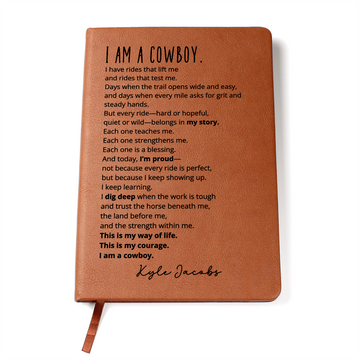 I AM A COWBOY.
I have rides that lift me
and rides that test me.
Days when the trail opens wide and easy,
and days when every mile asks for grit and
steady hands.
But every ride—hard or hopeful,
quiet or wild—belongs in my story.
Each one teaches me.
Each one strengthens me.
Each one is a blessing.
And today, I'm proud—
not because every ride is perfect,
but because I keep showing up.
I keep learning.
I dig deep when the work is tough
and trust the horse beneath me,
the land before me,
and the strength within me.
This is my way of life.
This is my courage.
I am a cowboy.
Kyle Jacobs